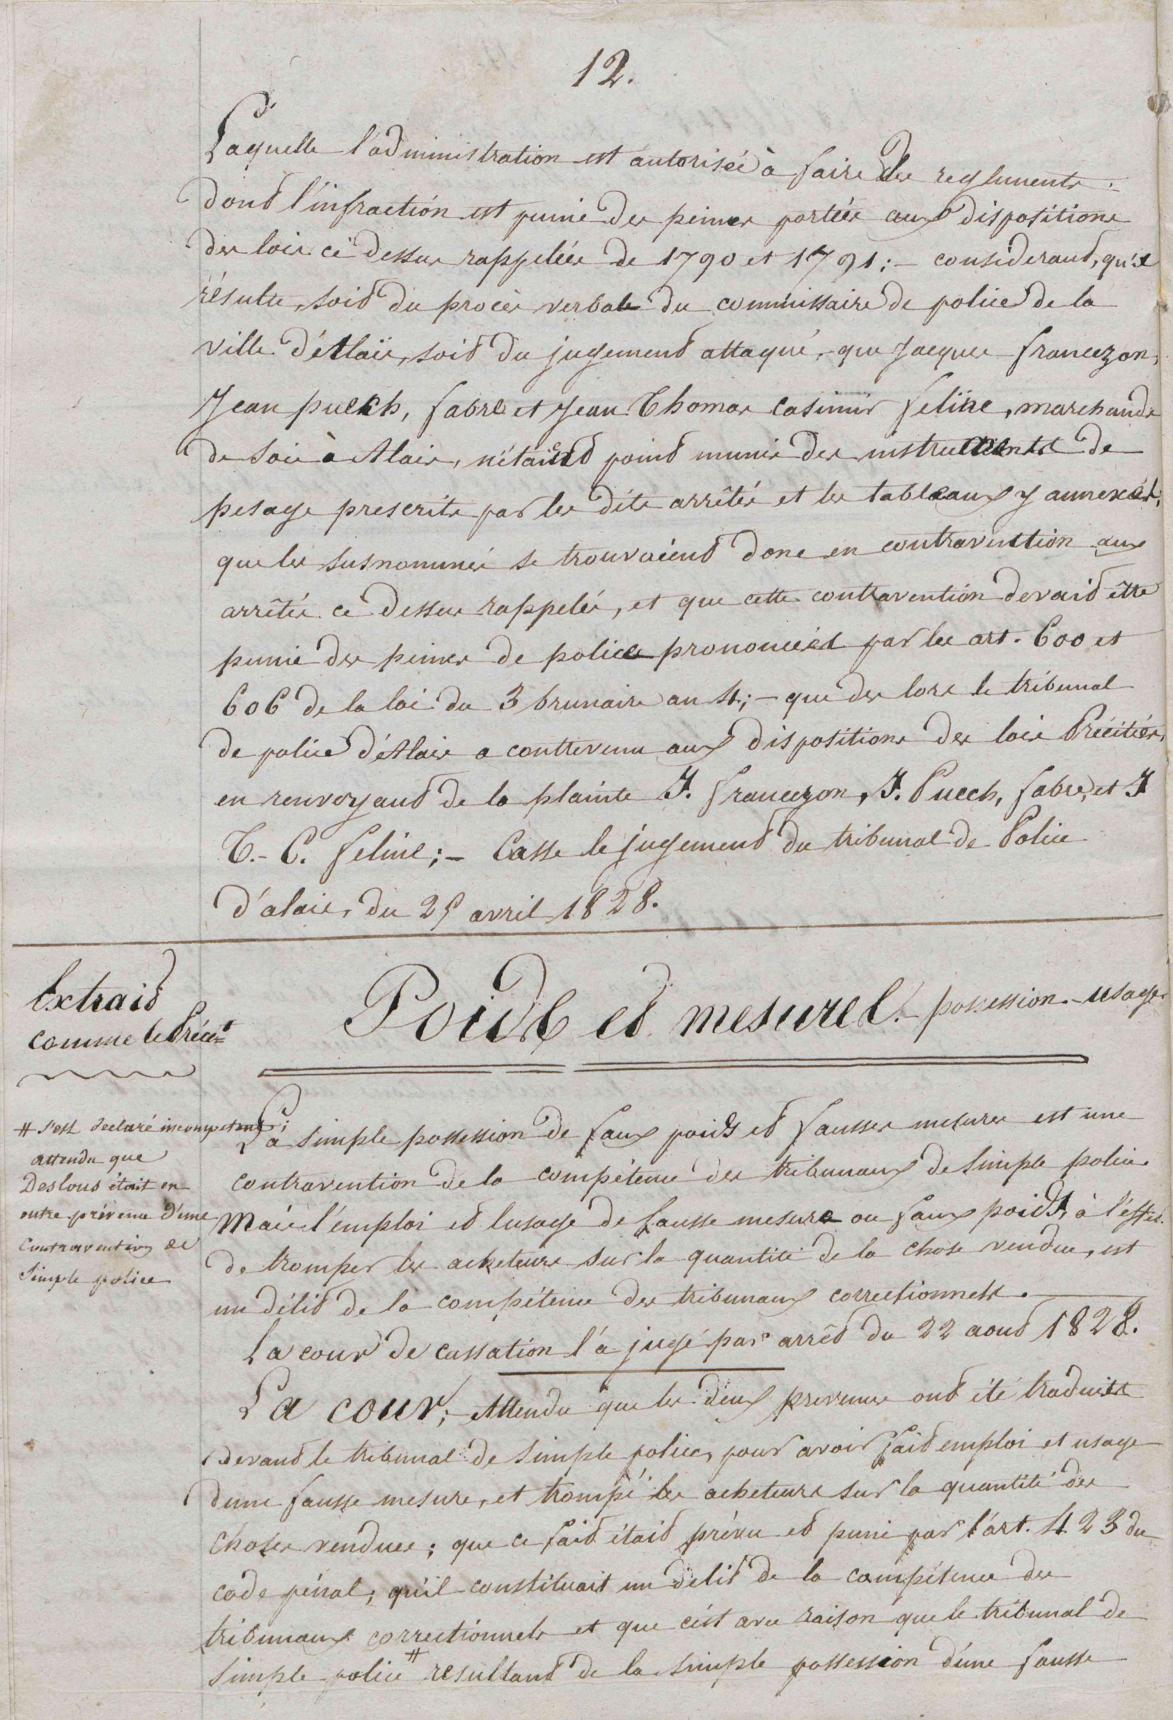 12.
Laquelle l'administration est autorisée à faire des reglements.
dont l'infraction est punie des peines portées aux dispositions
des lois ci dessus rappelées de 1790 et 1791; – considerant, qu'il
résulte, soit du procès verbale du commissaire de police de la
ville d'Alais, soit du jugement attaqué, que Jacques francezon,
Jean puech, fabre et Jean Thomas casimir feline, marchands
de soie à Alais, n'étaient point munis des instruments de
pesage prescrits par les dits arrêtés et les tableaux y annexés,
que les susnommés se trouvaient donc en contravention aux
arrêtés ce dessus rappelés, et que cette contravention devait être
punie des peines de police prononcées par les art. 600 et
606 de la loi du 3 brumaire an 4; – que des lors le tribunal
de police d'Alais a contrevenu aux dispositions des lois Précitées,
en renvoyant de la plainte J. francezon, J. Puech, fabre, et J
T. – C. feline; – Casse le jugement du tribunal de Police
d'alais, du 25 avril 1828.
Extrait
comme le Préct
Poids et mesures. – possession. – usage.
La simple possession de faux poids et fausses mesures est une
contravention de la compétence des tribunaux de simple police.
Mais l'emploi et l'usage de fausse mesure ou faux poids, à l'effet
de tromper les acheteurs sur la quantité de la chose vendue, est
un délit de la compétence des tribunaux correctionnels.
La cour de cassation l'a jugé par arrêt du 22 aout 1828.
La cour; – Attendu que les deux prevenus ont été traduits
devant le tribunal de simple police, pour avoir fait emploi et usage
d'une fausse mesure, et trompé les acheteurs sur la quantité des
choses vendues; que ce fait était prévu et puni par l'art. 423 du
code pénal, qu'il constituait un délit de la compétence des
tribunaux correctionnels et que c'est avec raison que le tribunal de
simple police # resultant de la simple possession d'une fausse
# s'est declaré incompetent;
attendu que
Deslous était en
outre prévenu d'une
Contravention de
Simple police